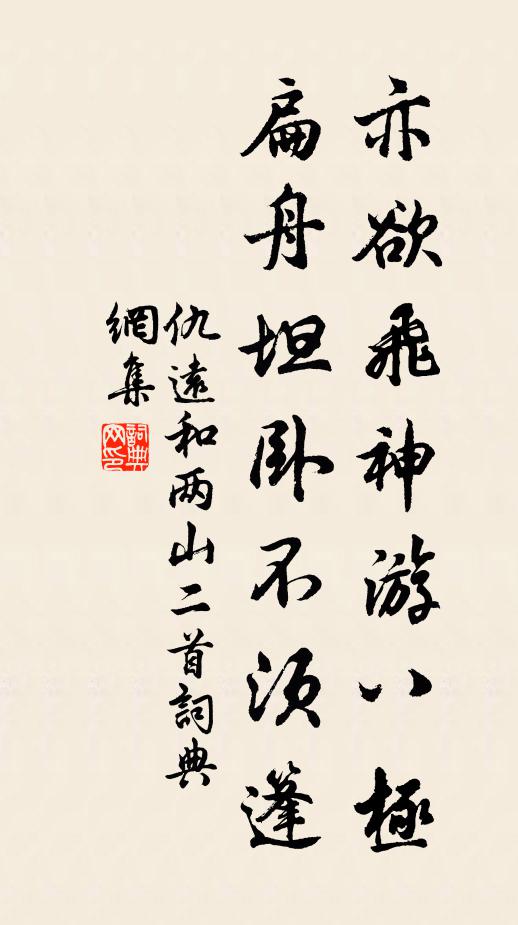 亦欲飛神游八極
扁舟坦卧不須篷
仇遠和两山二首詞典
網集
詞典
网印